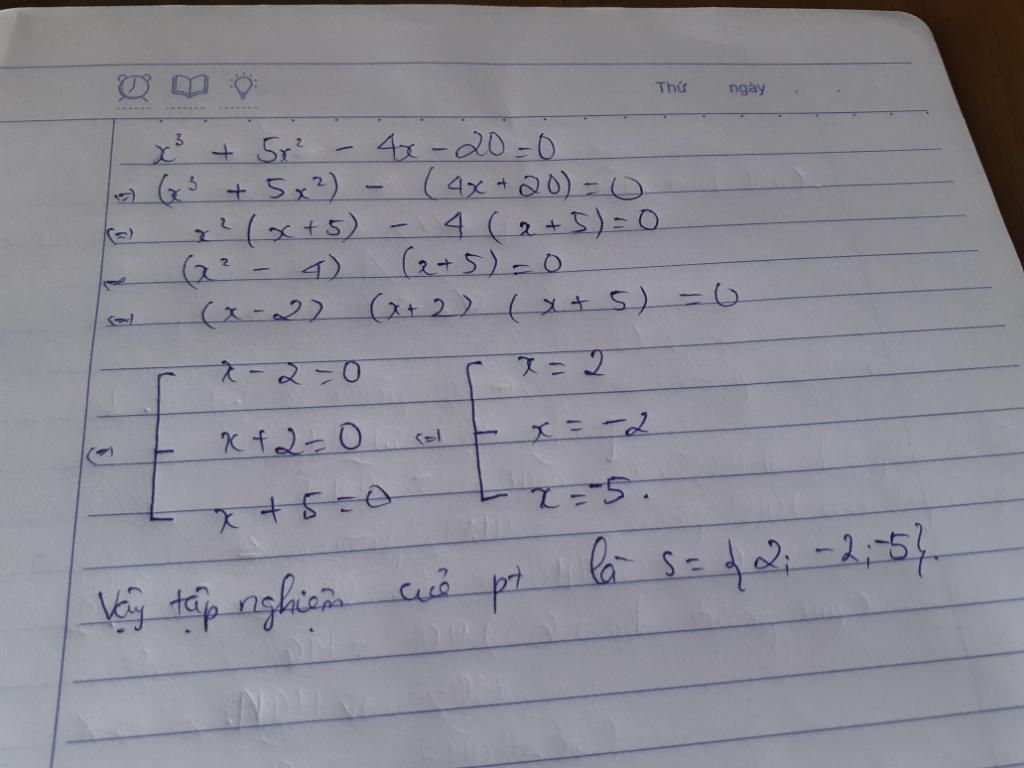 Thứ ngày
x³ + 5x² - 4x - 20 = 0
(=) (x³ + 5x²) - (4x + 20) = 0
(=) x² (x + 5) - 4 (x + 5) = 0
(=) (x² - 4) (x + 5) = 0
(=) (x - 2) (x + 2) (x + 5) = 0
(=) [ x - 2 = 0 (=) [ x = 2
x + 2 = 0 x = -2
x + 5 = 0 x = -5.
Vậy tập nghiệm của pt là S = {2; -2; -5}.